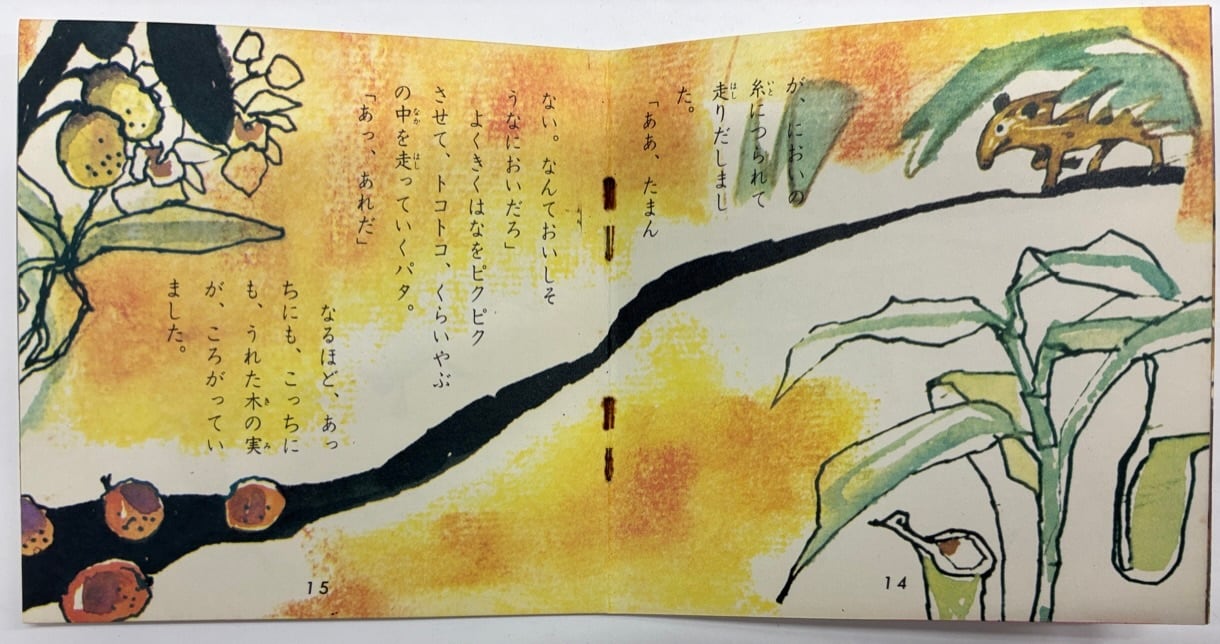 が、においの
糸につられて
走りだしまし
た。
「ああ、たまん
14
ない。なんておいしそ
うなにおいだろ」
よくきくはなをピクピク
させて、トコトコ、くらいやぶ
の中を走っていくパタ。
「あっ、あれだ」
なるほど、あっ
ちにも、こっちに
も、うれた木の実
が、ころがってい
ました。
15